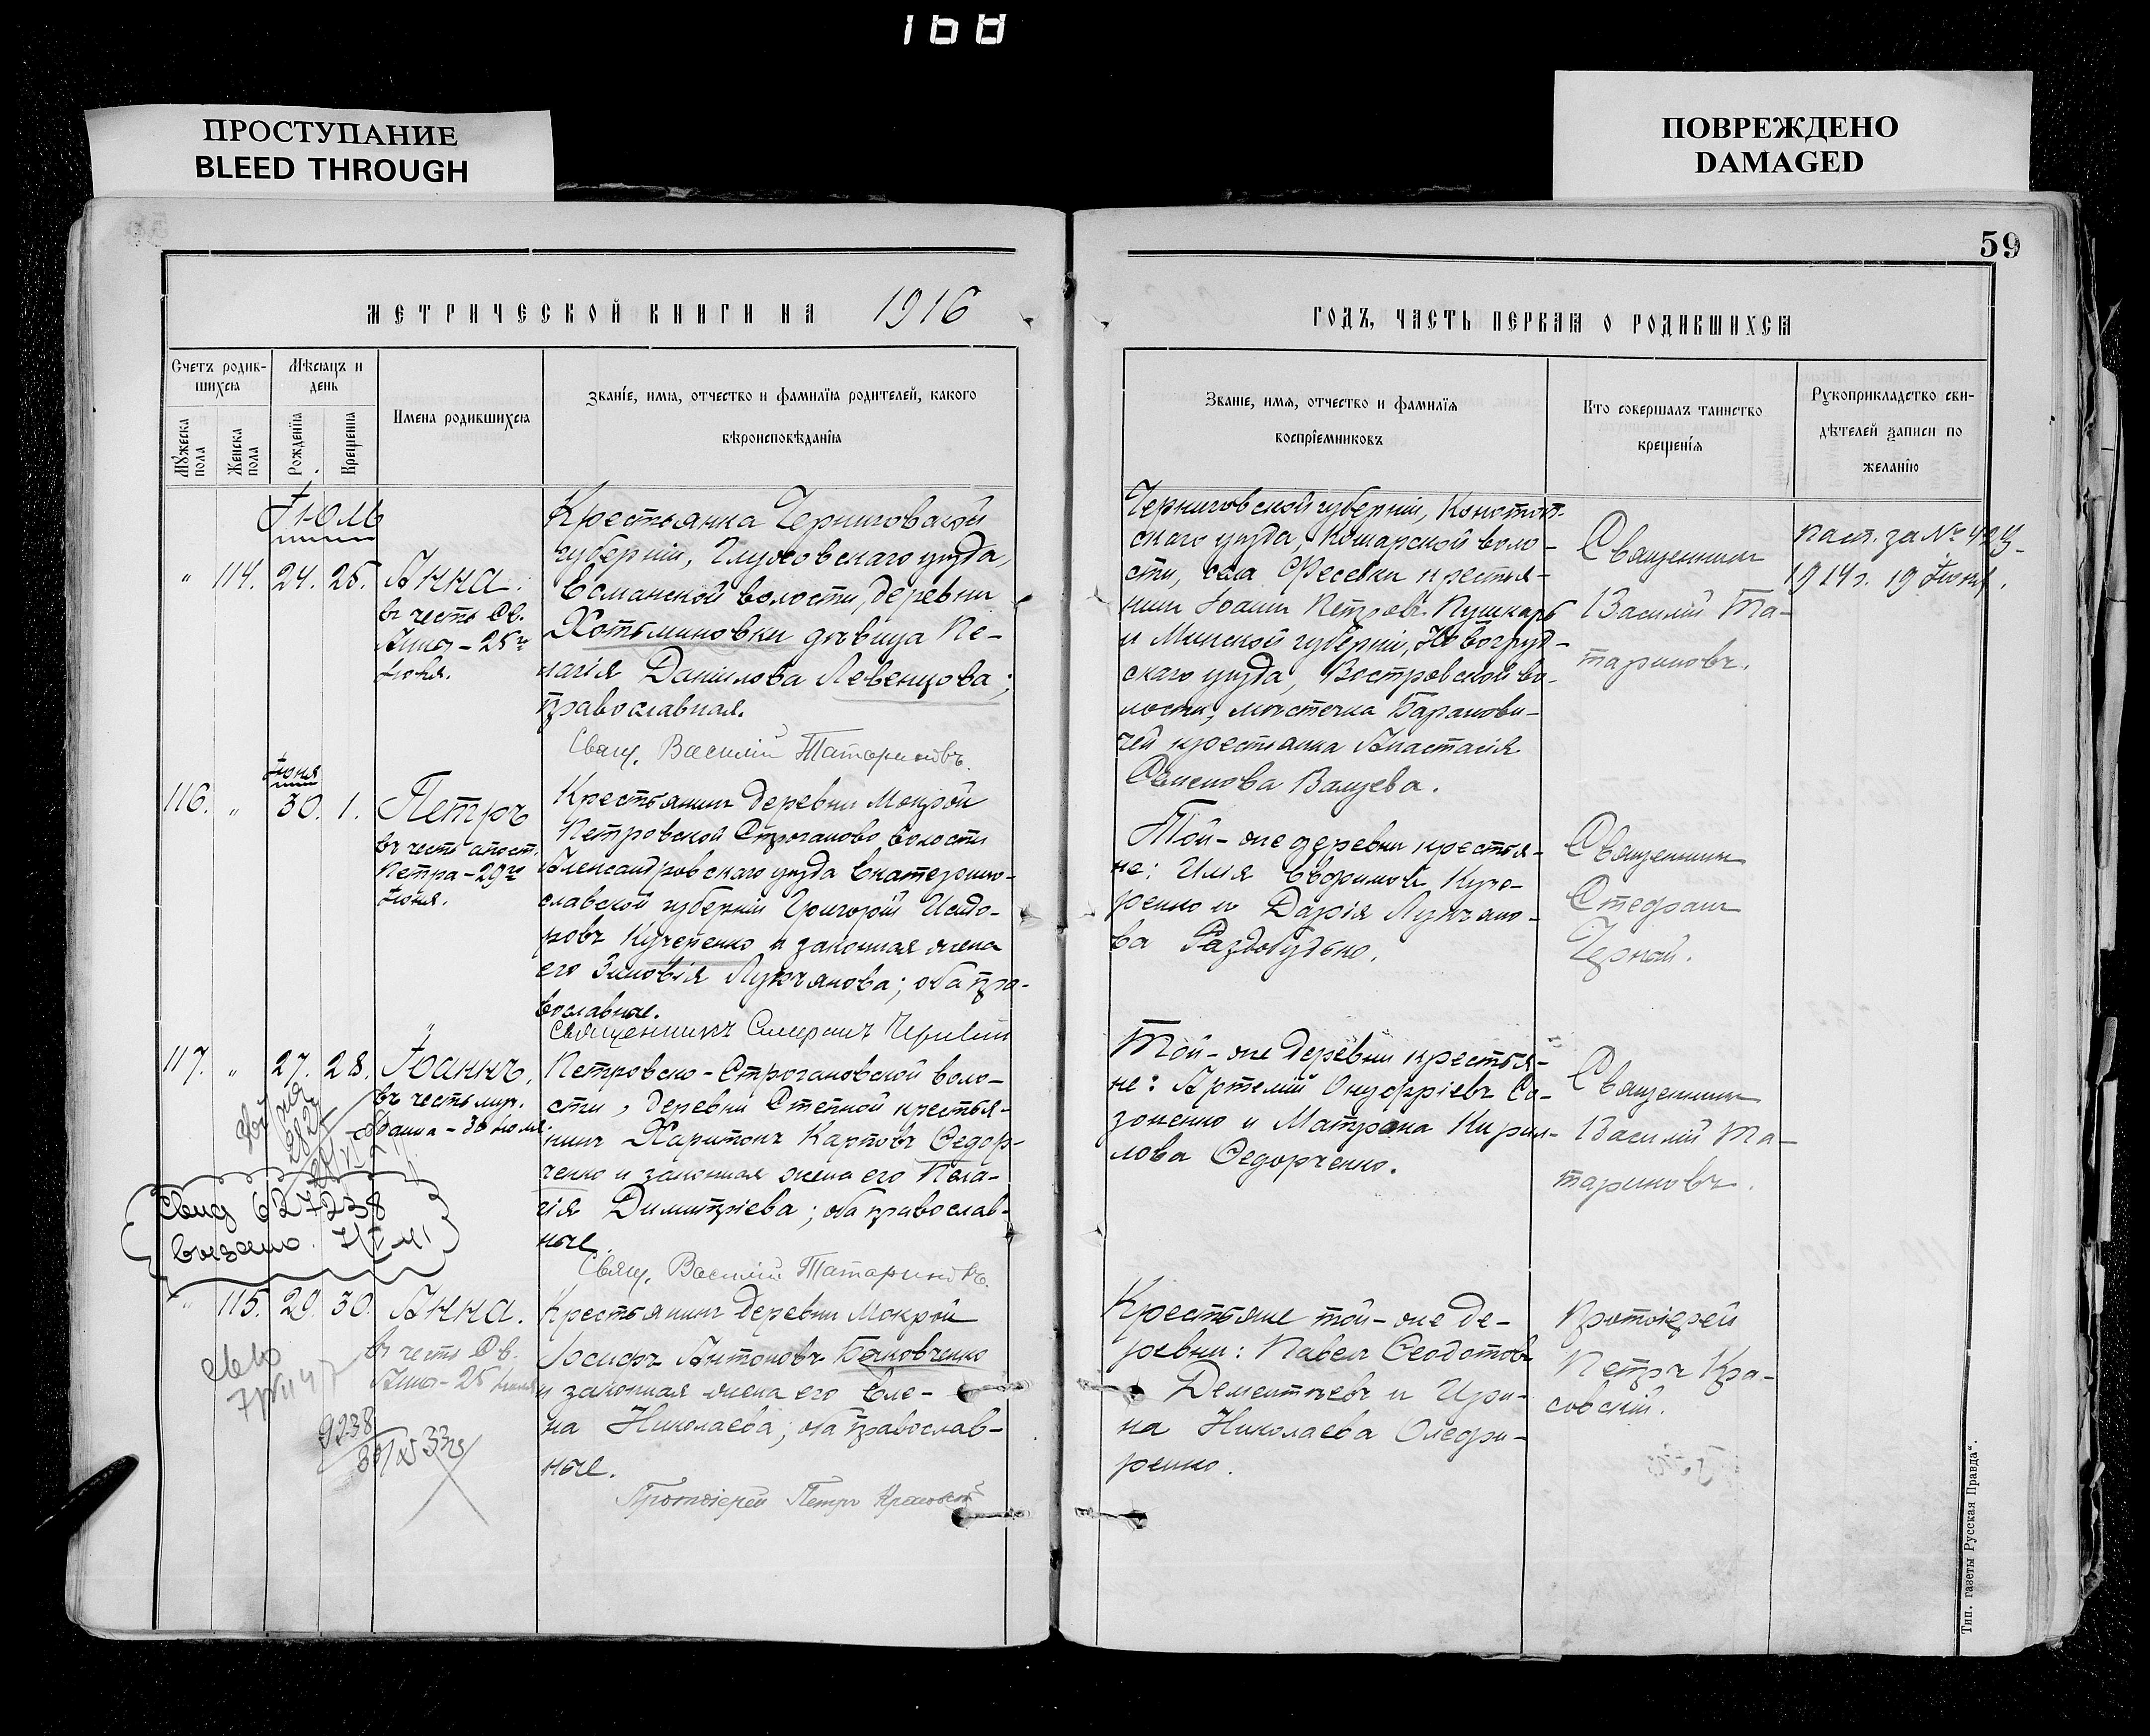 168
ПРОСТУПАНИЕ
BLEED THROUGH
ПОВРЕЖДЕНО
DAMAGED
59
МЕТРИЧЕСКОЙ КНИГИ НА 1916
ГОДЪ, ЧАСТЬ ПЕРВАЯ О РОДИВШИХСЯ
Счетъ родив-
шихся
Мужеска пола
Женска пола
Мѣсяцъ и
день
Рожденїя
Крещенїя
Имена родившихся
Званїе, имя, отчество и фамилїя родителей, какого
вѣроисповѣданїя
Званїе, имя, отчество и фамилїя
воспрїемниковъ
Кто совершалъ таинство
крещенїя
Рукоприкладство сви-
дѣтелей записи по
желанїю
Іюль
" 114. 24. 25. Анна.
въ честь Св.
Анны - 25го
Іюля.
Крестьянка Черниговской
губерніи, Глуховскаго уѣзда,
Есманской волости, деревни
Хотьминовки дѣвица Пе-
лагія Даніилова Левенцова;
православная.
Свящ. Василій Татариновъ.
Черниговской губерніи, Конотоп-
скаго уѣзда, Кошарской воло-
сти, села Фесевки крестья-
нинъ Іоаннъ Петровъ Пушкарь
и Минской губерніи, Новогруд-
скаго уѣзда, Востровской во-
лости, мѣстечка Баранови-
чей крестьянка Анастасія
Семенова
Священникъ
Василій Та-
тариновъ.
пасп. за №
1914 г. 19 Іюня.
Іюня
116. " 30. 1. Петръ
въ честь апост.
Петра - 29го
Іюня.
Крестьянинъ деревни Мокрой
Петровской Строганово волости
Александровскаго уѣзда Екатерино-
славской губерніи Григорій Исидо-
ровъ Кучеренко и законная жена
его Зиновія Лукьянова; оба пра-
вославные.
Священникъ Стефанъ Черный
Той-же деревни крестья-
не: Илія Евфимовъ Куче-
ренко и Дарія Лукьяно-
ва Раздобудько.
Священникъ
Стефанъ
Черный.
117. " 27. 28. Іоаннъ.
въ честь муч.
Іоанна - 30 Іюля.
Петровско-Строгановской воло-
сти, деревни Степной крестья-
нинъ Харитонъ Карповъ Федор-
ченко и законная жена его Пела-
гія Димитріева; оба православ-
ные.
Свящ. Василій Татариновъ.
Той-же деревни крестья-
не: Артемій Онуфріевъ Са-
зоненко и Матрона Кирил-
лова Федорченко.
Священникъ
Василій Та-
тариновъ.
Свид 627238
" 115. 29. 30. Анна.
въ честь Св.
Анны - 25 Іюля
9238
Крестьянинъ деревни Мокрой
Іосифъ Антоновъ Быковченко
и законная жена его Еле-
на Николаева; оба православ-
ные.
Протоіерей Петръ Красовскій
Крестьяне той-же де-
ревни: Павелъ Феодотовъ
Дементьевъ и Ири-
на Николаева Олефи-
ренко.
Протоіерей
Петръ Кра-
совскій.
Тип. газеты Русская Правда".